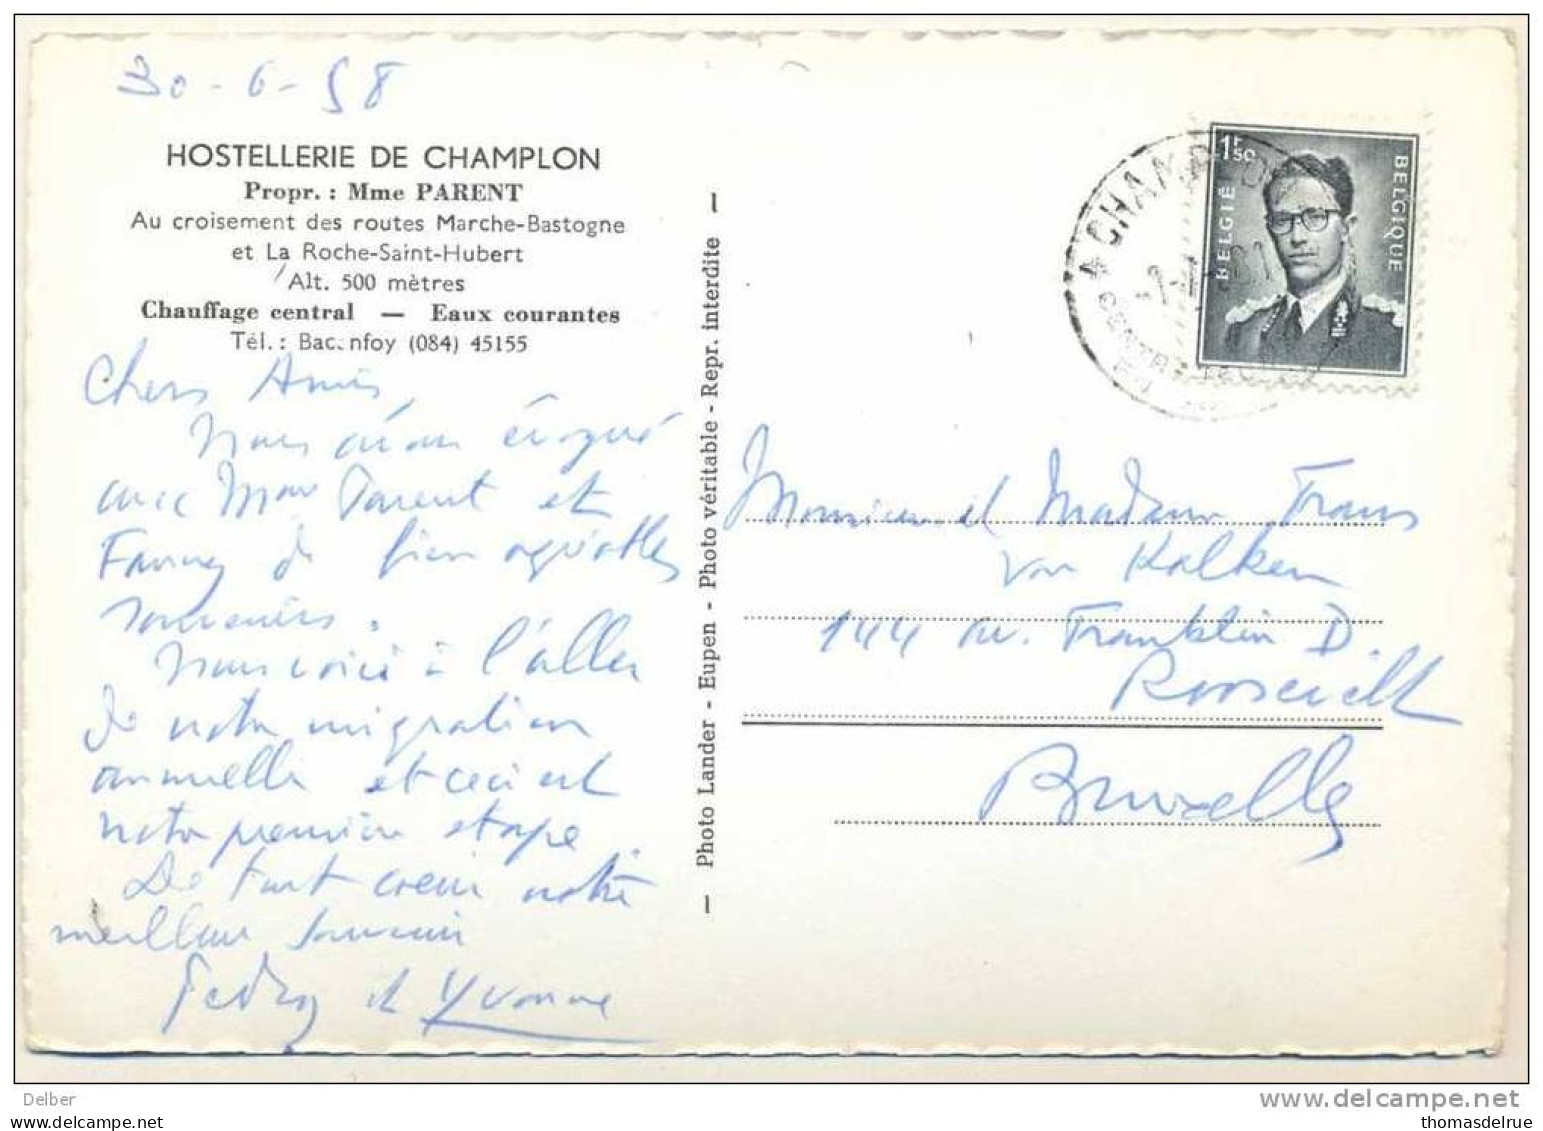 30-6-58
HOSTELLERIE DE CHAMPLON
Propr. : Mme PARENT
Au croisement des routes Marche-Bastogne
et La Roche-Saint-Hubert
Alt. 500 mètres
Chauffage central — Eaux courantes
Tél. : Baconfoy (084) 45155
Chers Amis,
Nous avons évoqué
avec Mme Parent et
Fanny de bien agréables
souvenirs.
Nous voici à l'aller
de notre migration
annuelle et ceci est
notre première étape.
De tout coeur notre
meilleur souvenir
et Yvonne
— Photo Lander - Eupen - Photo véritable - Repr. interdite —
1F50
BELGIE
BELGIQUE
CHAMPLON
Monsieur et Madame Frans
van Kalken
144 av. Franklin D.
Roosevelt
Bruxelles
Delber
www.delcampe.net
thomasdelrue